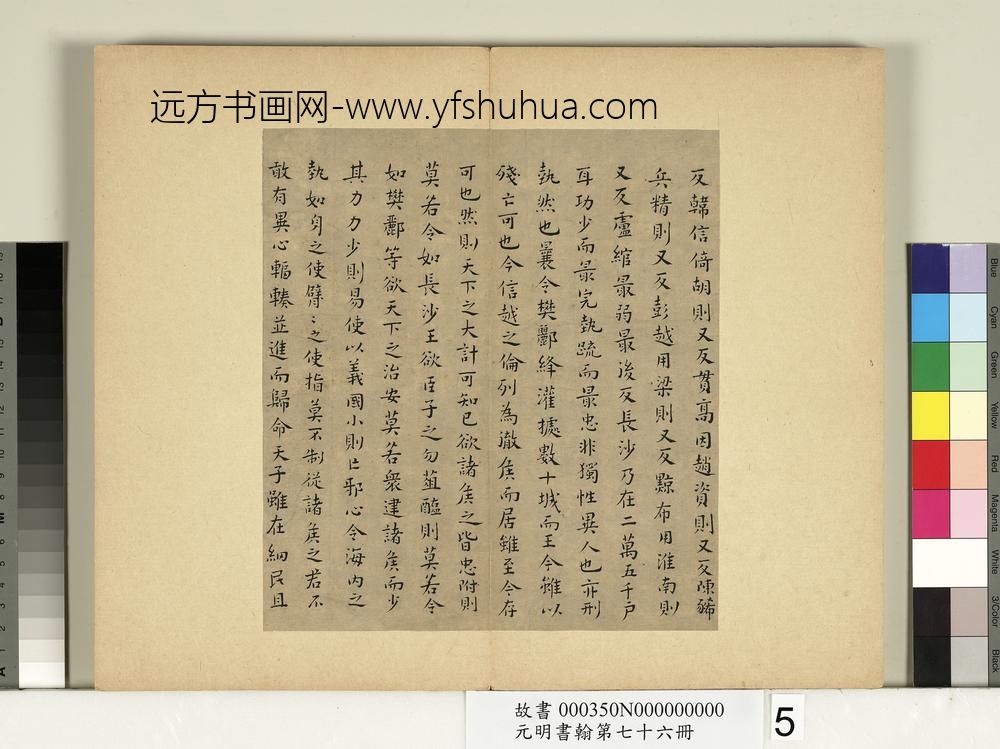 远方书画网-www.yfshuhua.com
反韓信倚胡則又反貫高因趙資則又反陳豨
兵精則又反彭越用梁則又反黥布用淮南則
又反盧綰最弱最後反長沙乃在二萬五千戶
耳功少而最完埶疏而最忠非獨性異人也亦刑
埶然也曩令樊酈絳灌據數十城而王今雖以
殘亡可也令信越之倫列為徹矦而居雖至今存
可也然則天下之大計可知已欲諸矦之皆忠附則
莫若令如長沙王欲臣子之勿菹醢則莫若令
如樊酈等欲天下之治安莫若衆建諸矦而少
其力力少則易使以義國小則亡邪心令海內之
埶如身之使臂臂之使指莫不制從諸矦之君不
敢有異心輻輳並進而歸命天子雖在細民且
故書 000350N000000000
元明書翰第七十六冊
5
Blue
Cyan
Green
Yellow
Red
Magenta
White
3/Color
Black